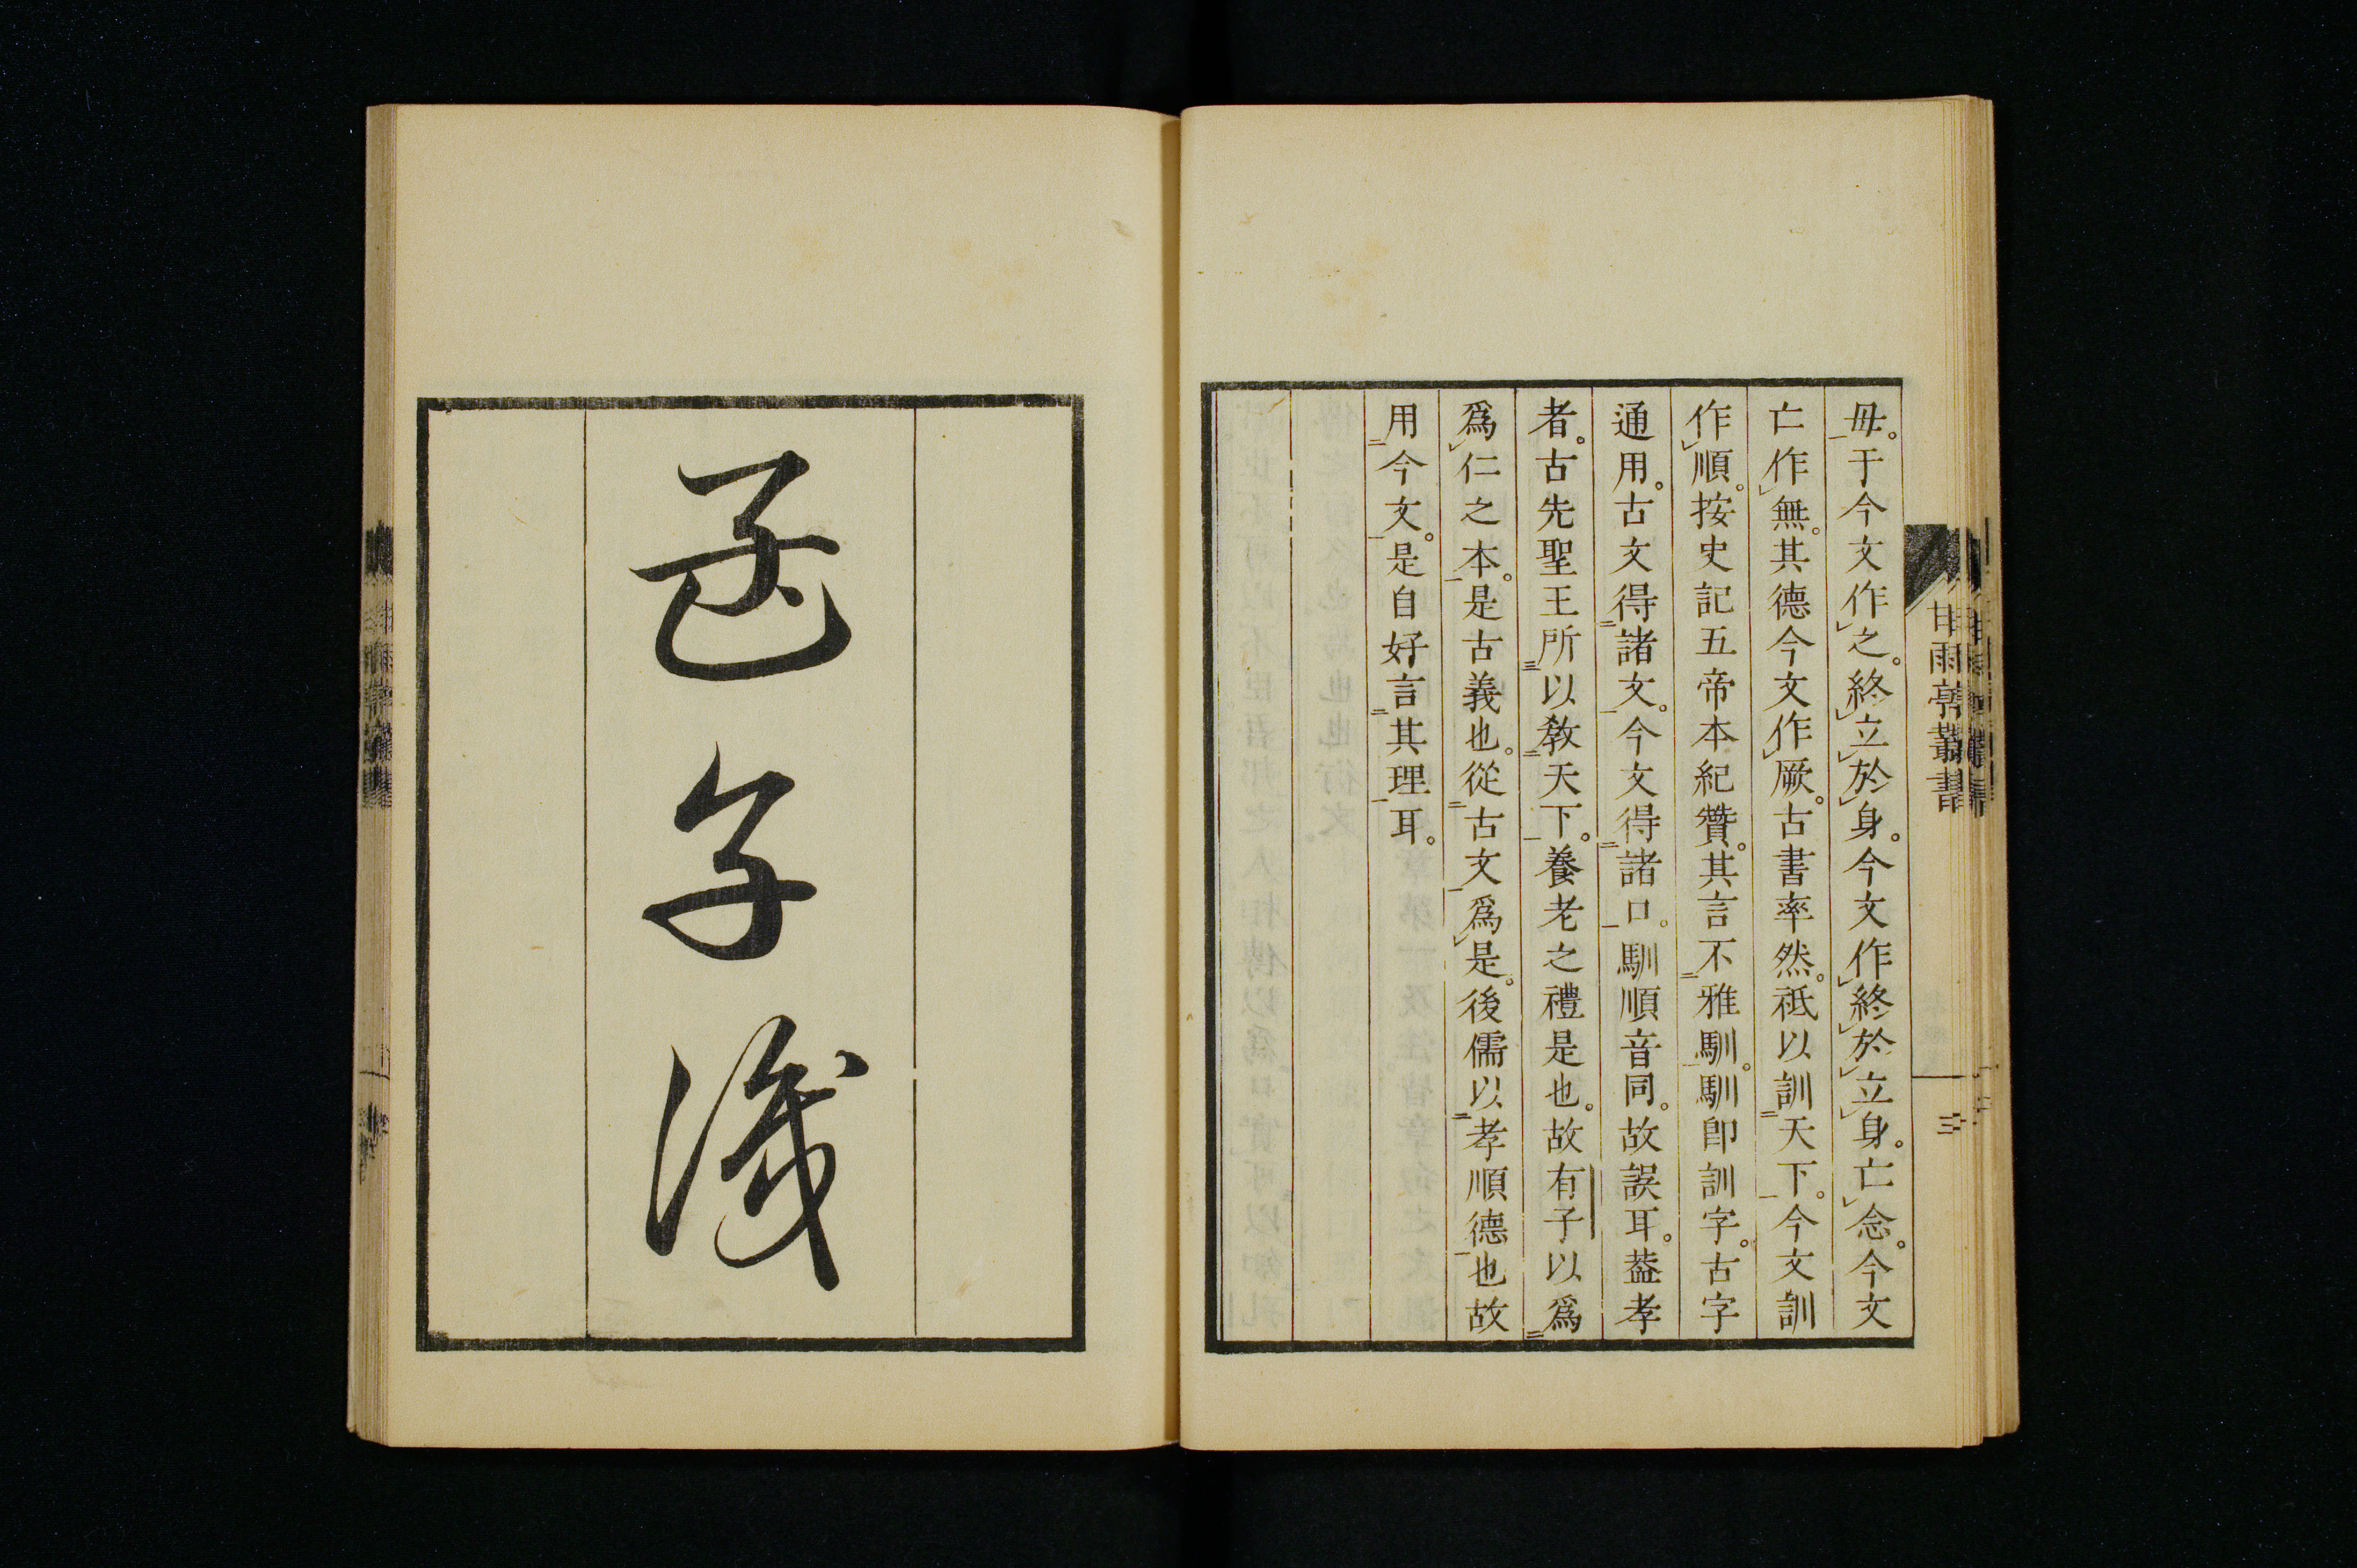 甘雨亭叢書
三
毋。于今文作之。終立於身。今文作終於立身。亡念。今文
亡作無。其德今文作厥。古書率然。祗以訓天下。今文訓
作順。按史記五帝本紀贊。其言不雅馴。馴即訓字。古字
通用。古文得諸文。今文得諸口。馴順音同。故誤耳。蓋孝
者。古先聖王所以敎天下。養老之禮是也。故有子以爲
爲仁之本。是古義也。從古文爲是。後儒以孝順德也故
用今文。是自好言其理耳。
孟子識